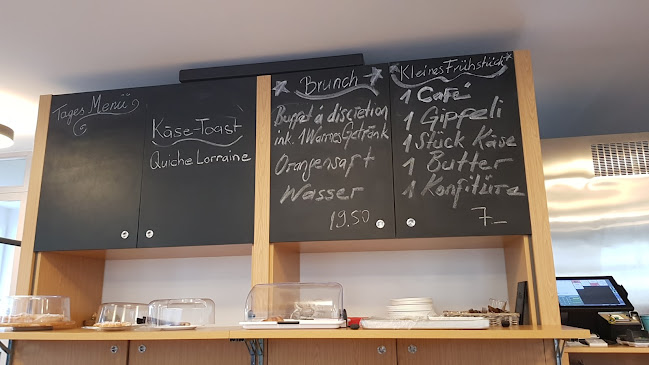 Tages Menü
Käse-Toast
Quiche Lorraine
Brunch
Buffet á discretion
ink. 1 Warmes Getränk
Orangensaft
Wasser
19.50
Kleines Frühstück
1 Café
1 Gipfeli
1 Stück Käse
1 Butter
1 Konfitüre
7.–